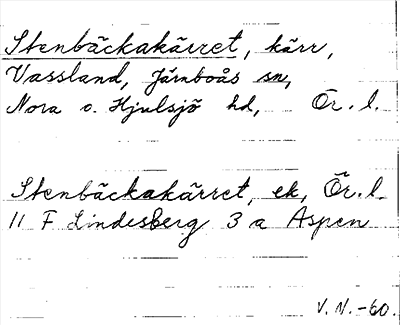 Stenbäckakärret, kärr,
Vassland, Järnboås sn,
Nora o. Hjulsjö hd, Ör. l.
Stenbäckakärret, ek, Ör. l.
11 F Lindesberg 3 a Aspen
V. N. -60.